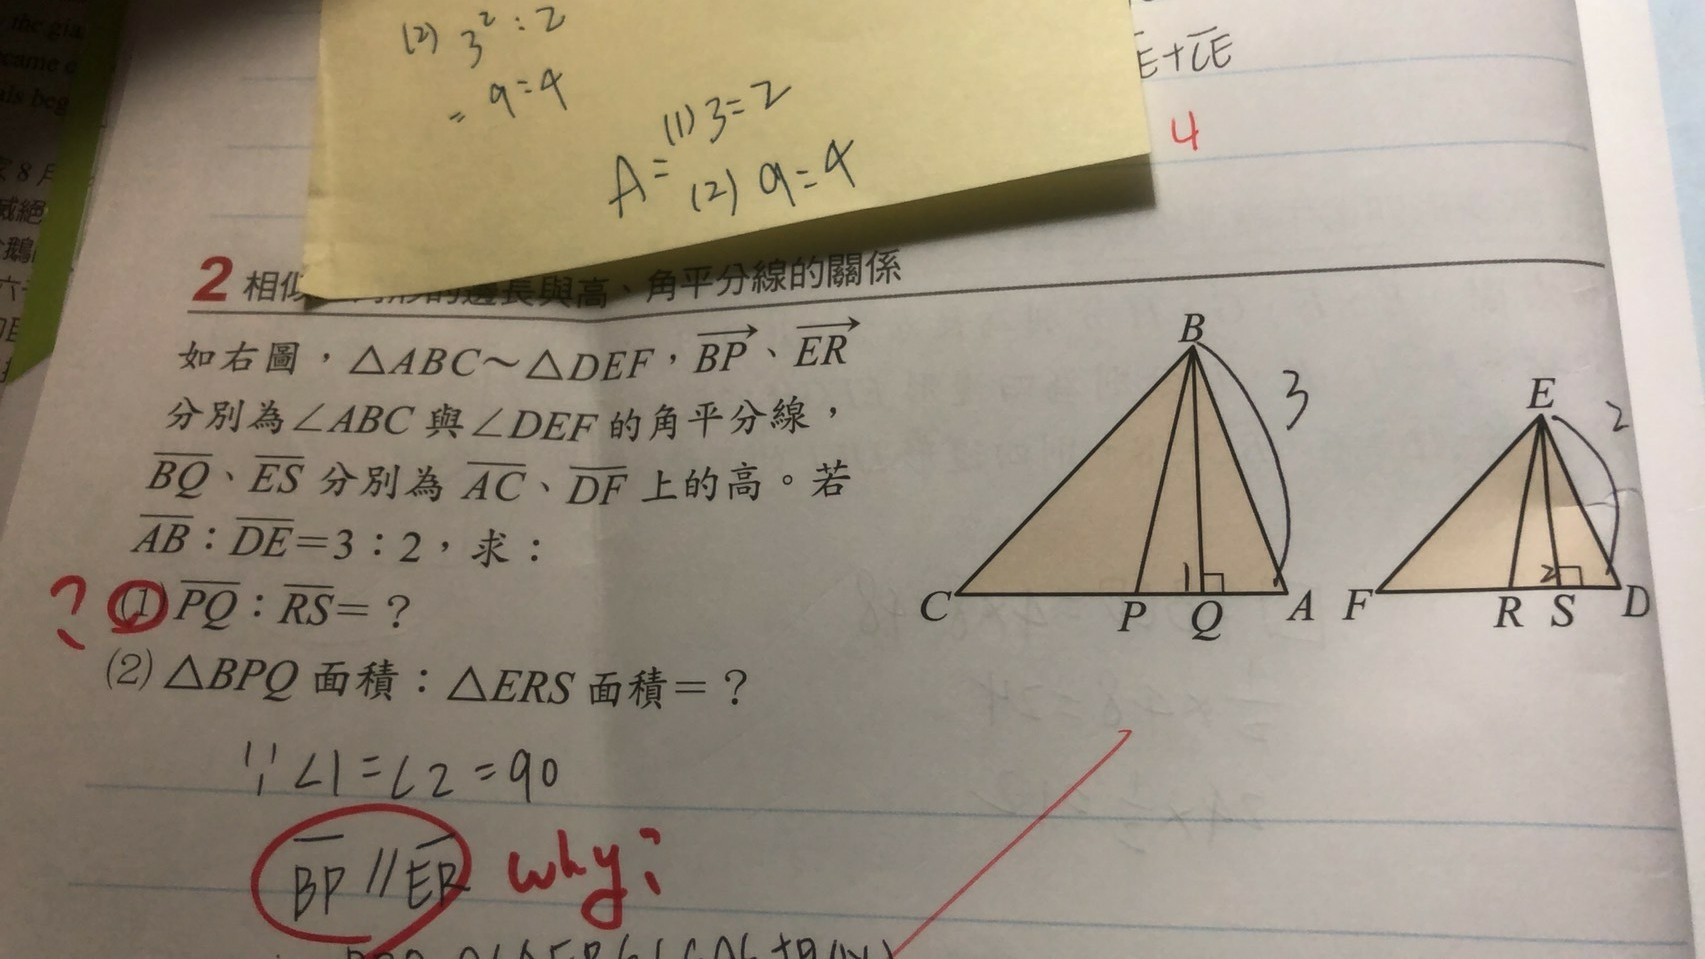 the gia
came
(2) 3²:2
= 9:4
A= (1) 3=2
(2) 9:4
E+CE
4
2 相似 的邊長與高、角平分線的關係
如右圖，△ABC～△DEF，BP、ER
分別為∠ABC 與∠DEF 的角平分線，
BQ、ES 分別為 AC、DF 上的高。若
AB：DE＝3：2，求：
? (1) PQ：RS＝？
(2) △BPQ 面積：△ERS 面積＝？
B
3
C P Q A
1
E
2
F R S D
2
∵ ∠1=∠2=90
BP // ER why?